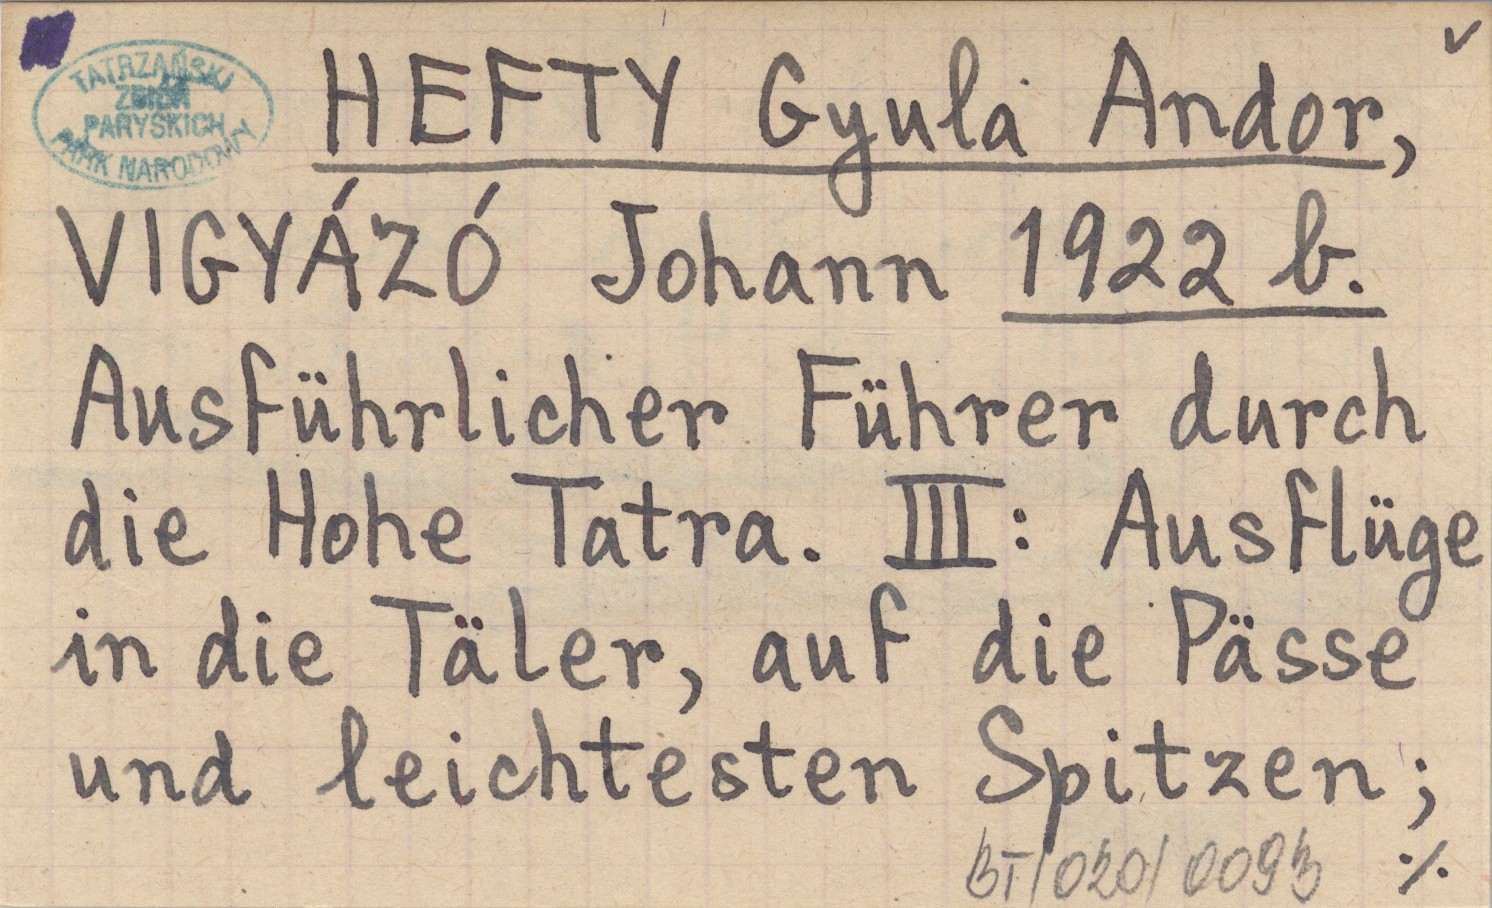 TATRZAŃSKI
ZBIÓR
PARYSKICH
PARK NARODOWY
HEFTY Gyula Andor,
VIGYÁZÓ Johann 1922 b.
Ausführlicher Führer durch
die Hohe Tatra. III: Ausflüge
in die Täler, auf die Pässe
und leichtesten Spitzen;
BT/020/0093 ./.